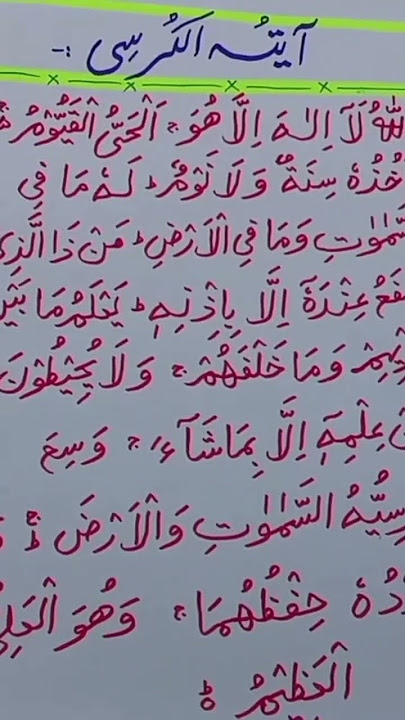 آیتہ الکرسی :-
اللهُ لَآ اِلٰهَ اِلَّا هُوَ ۚ اَلْحَیُّ الْقَیُّوْمُ
سِنَةٌ وَّلَا نَوْمٌ ؕ لَهٗ مَا فِی
وَمَا فِی الْاَرْضِ ؕ مَنْ ذَا الَّذِی
عِنْدَهٗٓ اِلَّا بِاِذْنِهٖ ؕ یَعْلَمُ مَا
وَمَا خَلْفَهُمْ ۚ وَلَا یُحِیْطُوْنَ
عِلْمِهٖٓ اِلَّا بِمَا شَآءَ ۚ وَسِعَ
السَّمٰوٰتِ وَالْاَرْضَ ۚ
حِفْظُهُمَا ۚ وَهُوَ الْعَلِیُّ
الْعَظِیْمُ ٥